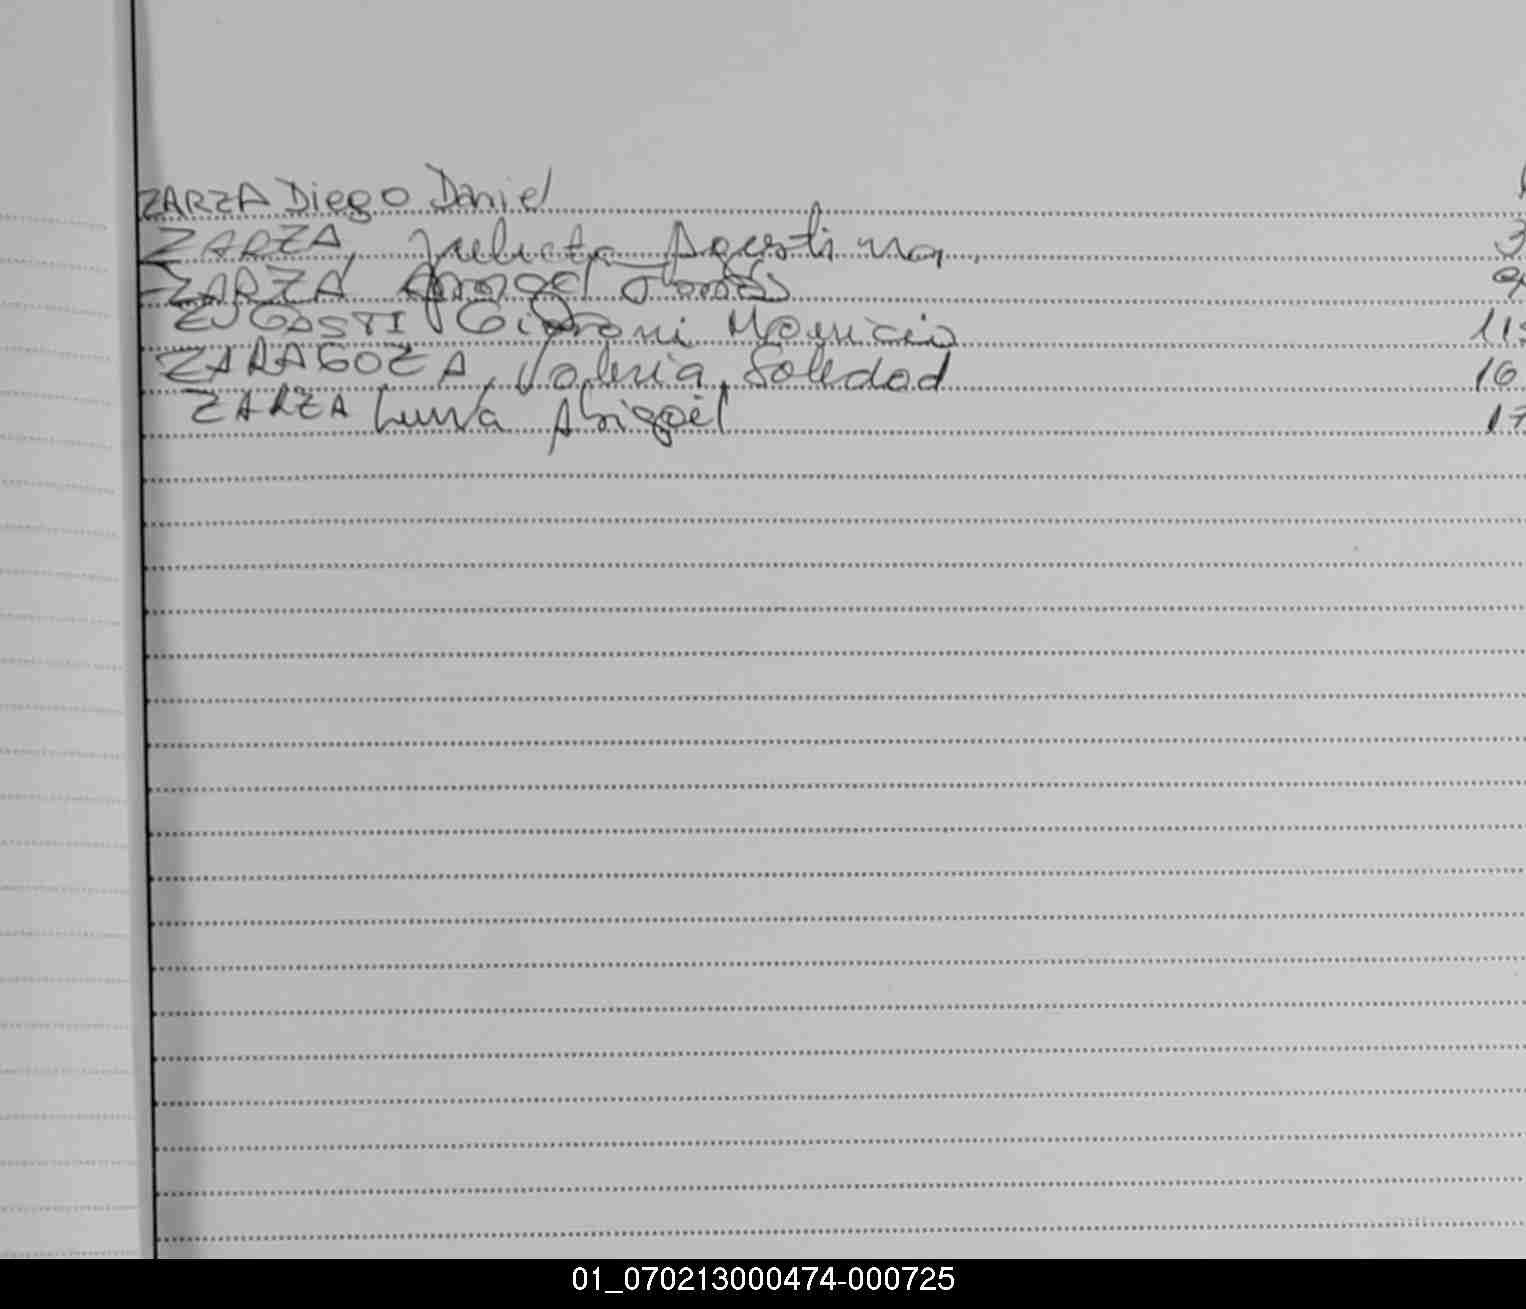 ZARZA Diego Daniel
ZARZA, Julieta Agustina. 3
ZARZA Angel Tomás
ZUGASTI Giovani Mauricio 11
ZARAGOZA, Valeria Soledad 16
ZARZA Luna Abigail 17
01_070213000474-000725